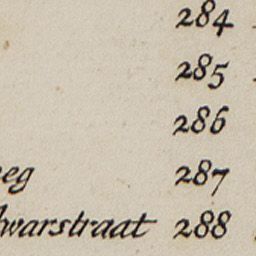 284
285
286
eg 287
warstraat 288